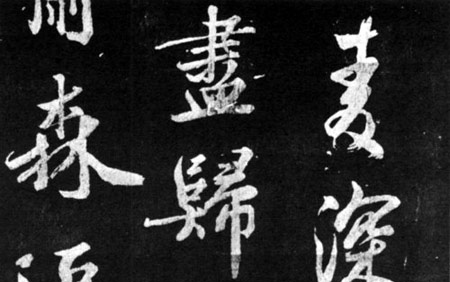 麦深
盡歸
森